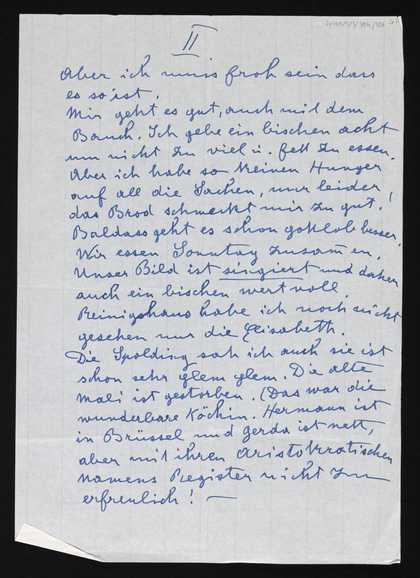 II
Aber ich muis froh sein dass
es so ist.
Mir geht es gut, auch mit dem
Bauch. Ich gebe ein bischen acht
um nicht zu viel u. fett zu essen.
Aber ich habe so keinen Hunger
auf all die Sachen, nur leider,
das Brod schmeckt mir zu gut.
Baldass geht es schon gottlob besser.
Wir essen Sonntag zusammen.
Unser Bild ist singiert und daher
auch ein bischen wertvoll.
Reinigshaus habe ich noch nicht
gesehen nur die Elisabeth.
Die Spolding sah ich auch sie ist
schon sehr glem glem. Die alte
Mali ist gestorben. (Das war die
wunderbare Köchin. Hermann ist
in Brüssel und Gerda ist nett,
aber mit ihren Aristokratischen
namens Register nicht zu
erfreulich! —